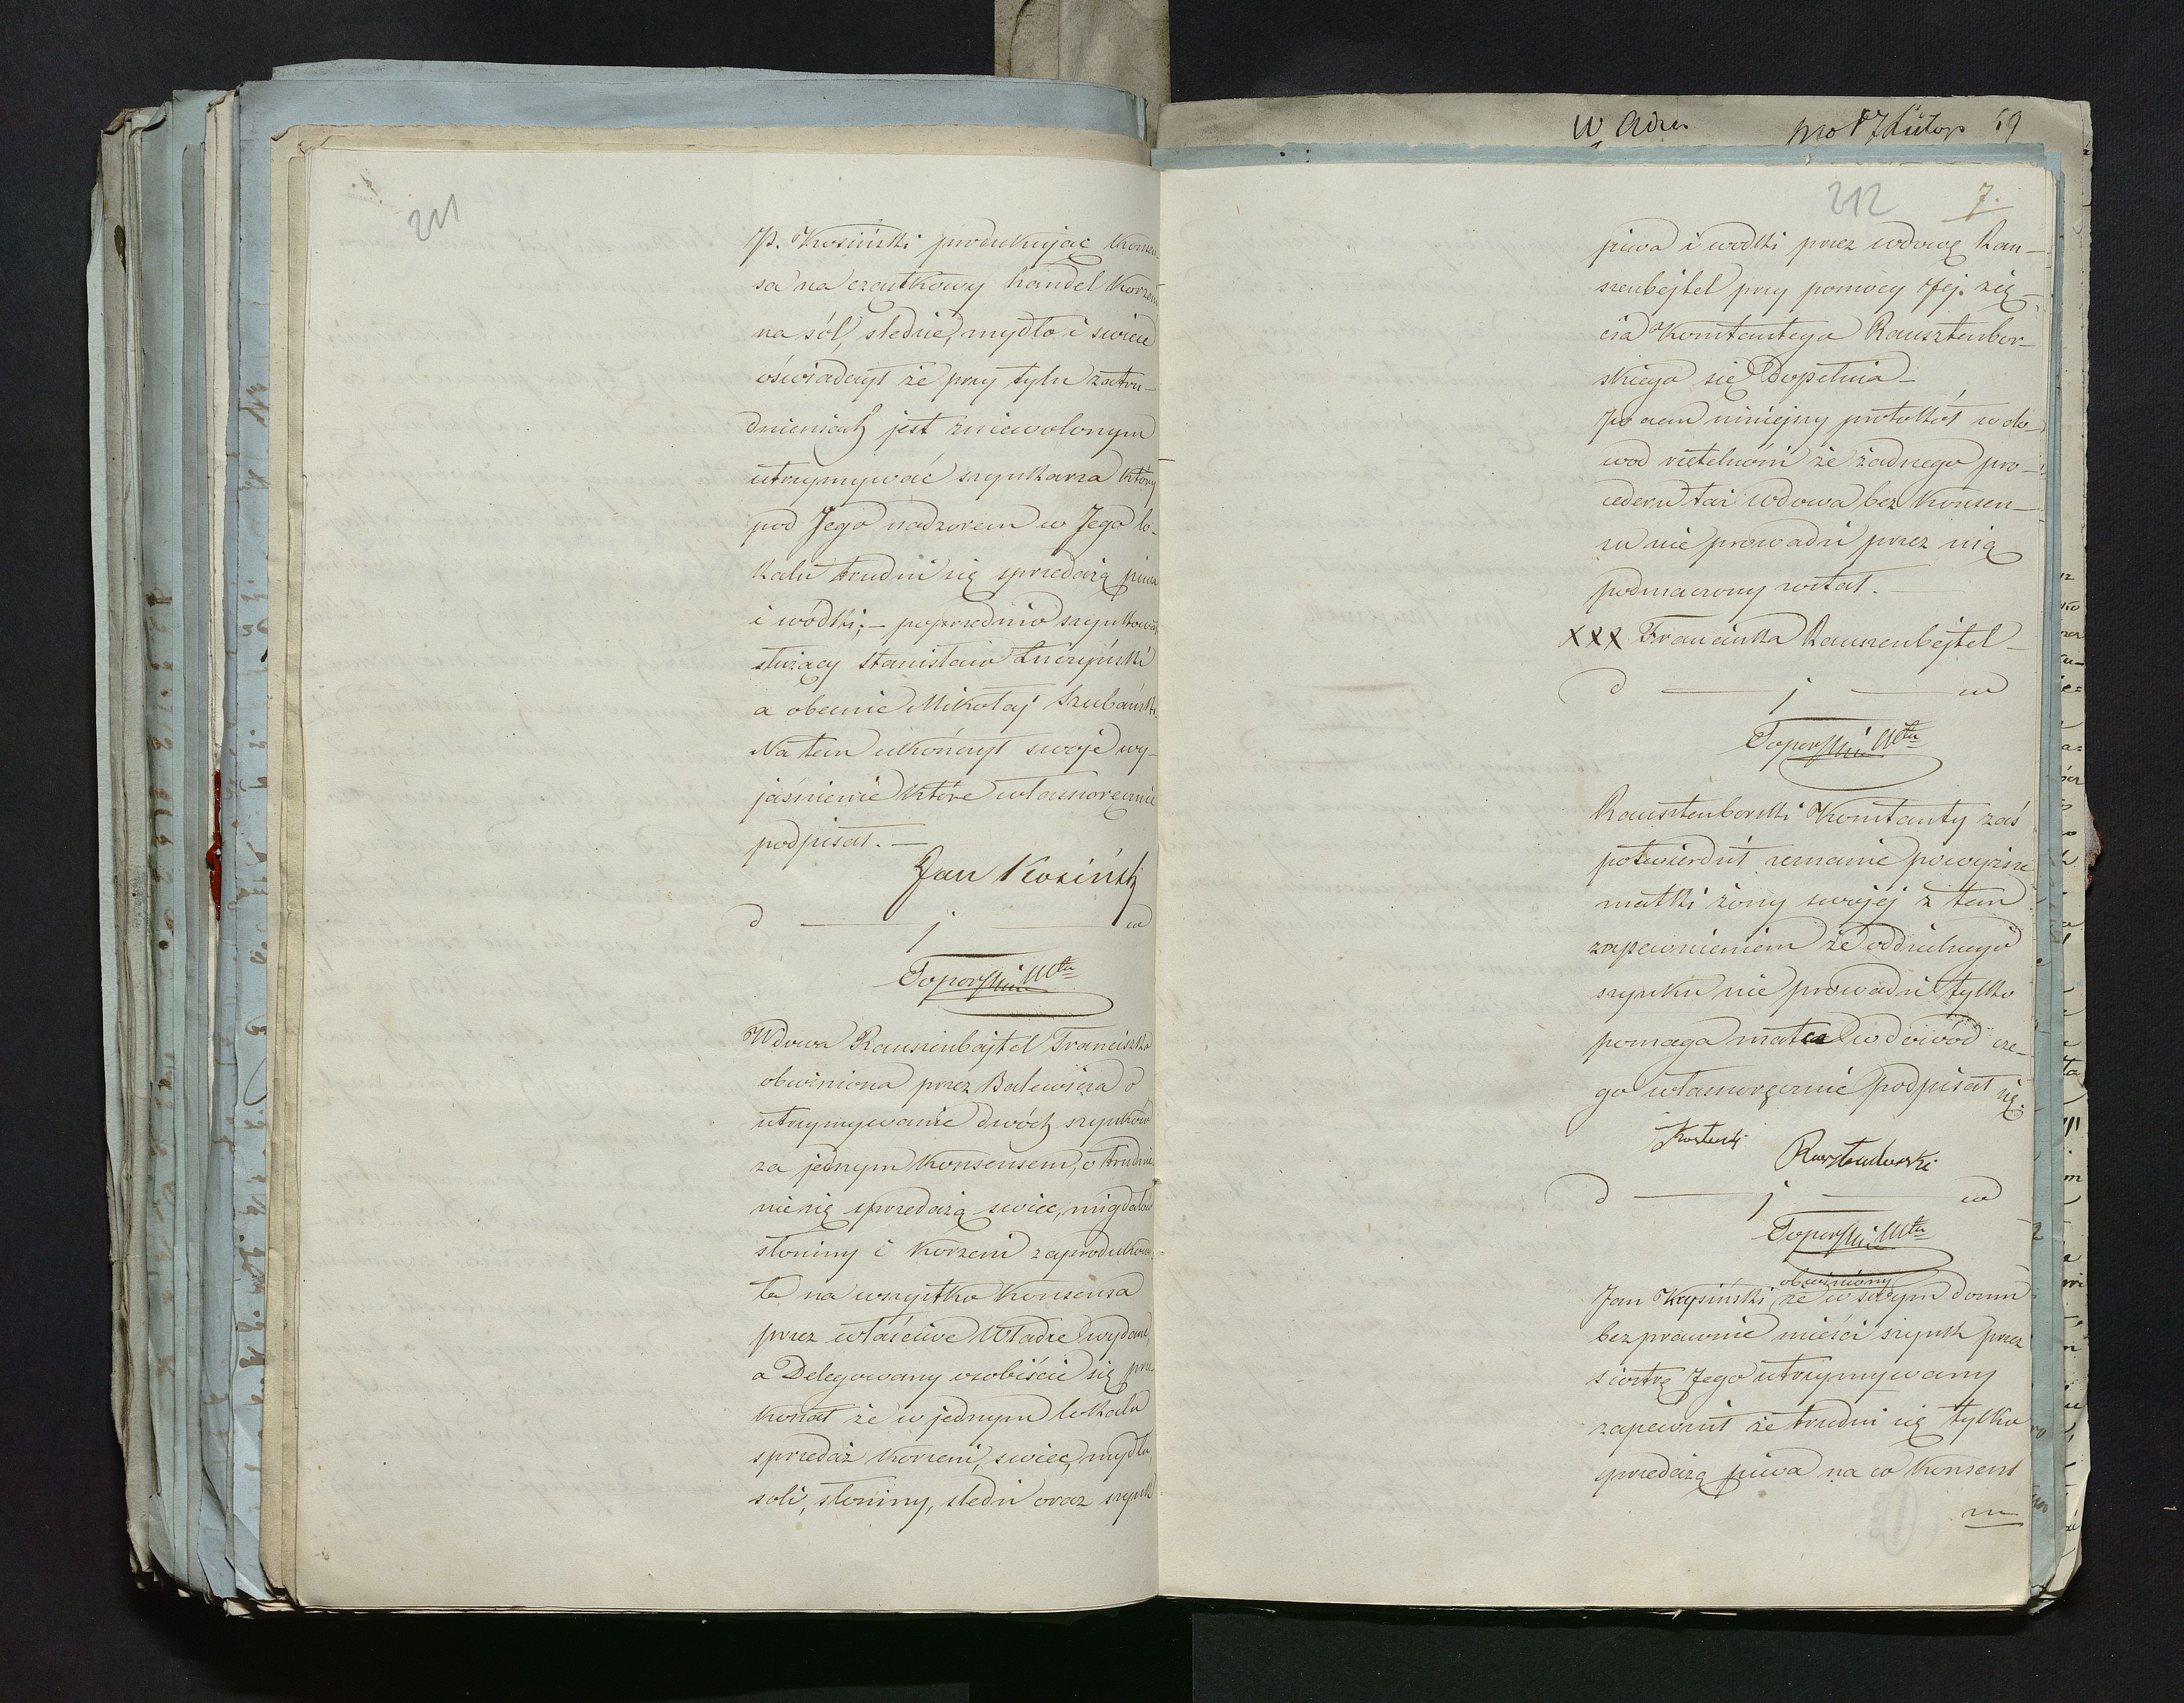 211
P. Kosiński produkując konsen-
sa na cząstkowy handel korzeni
na sól, sledzie, mydło i swiece
oświadczył że przy tylu zatru-
dnieniach jest zniewolonym
utrzymywać szynkarza który
pod Jego nadzorem w Jego lo-
kalu trudni się sprzedażą piwa
i wódki; – poprzednio szynkował
służący Stanisław Łuczyński
a obecnie Mikołaj Szubański.
Na tem ukończył swoje wy-
jaśnienie które własnoręcznie
podpisał. –
Jan Kosiński
d — j — w
Toporski
Wdowa Rauszenbajtel Franciszka
obwiniona przez Balewicza o
utrzymywanie dwóch szynków
za jednym konsensem, o trudnie
nie się sprzedażą swiec, migdałów
słoniny i korzeni zaprodukowa
ła na wszystko konsensa
przez właściwe Władze wydane,
a Delegowany osobiście się prze
konał że w jednym lokalu
sprzedaż korzeni, swiec, mydła,
soli, słoniny, sledzi oraz szynk
W
212
7.
piwa i wodki przez wdowę Rau-
szenbejtel przy pomocy Jej zię-
cia Konstantego Rausztenbor-
skiego się dopełnia –
Po czem niniejszy protokół w do-
wod rzetelności że żadnego pro-
cederu taż wdowa bez konsen-
su nie prowadzi przez nią
podznaczony został. –
XXX Franciszka Rauszenbejtel –
d — j — w
Toporski
Rausztenborski Konstanty zaś
potwierdził zeznanie powyższe
matki żony swojej z tem
zapewnieniem że oddzielnego
szynku nie prowadzi tylko
pomaga matce w dowód cze-
go własnoręcznie podpisał się.
d — j — w
Toporski
obwiniony
Jan Krysiński że w swym domu
bezprawnie mieści szynk przez
siostrę Jego utrzymywany
zapewnił że trudni się tylko
sprzedażą piwa na co konsens